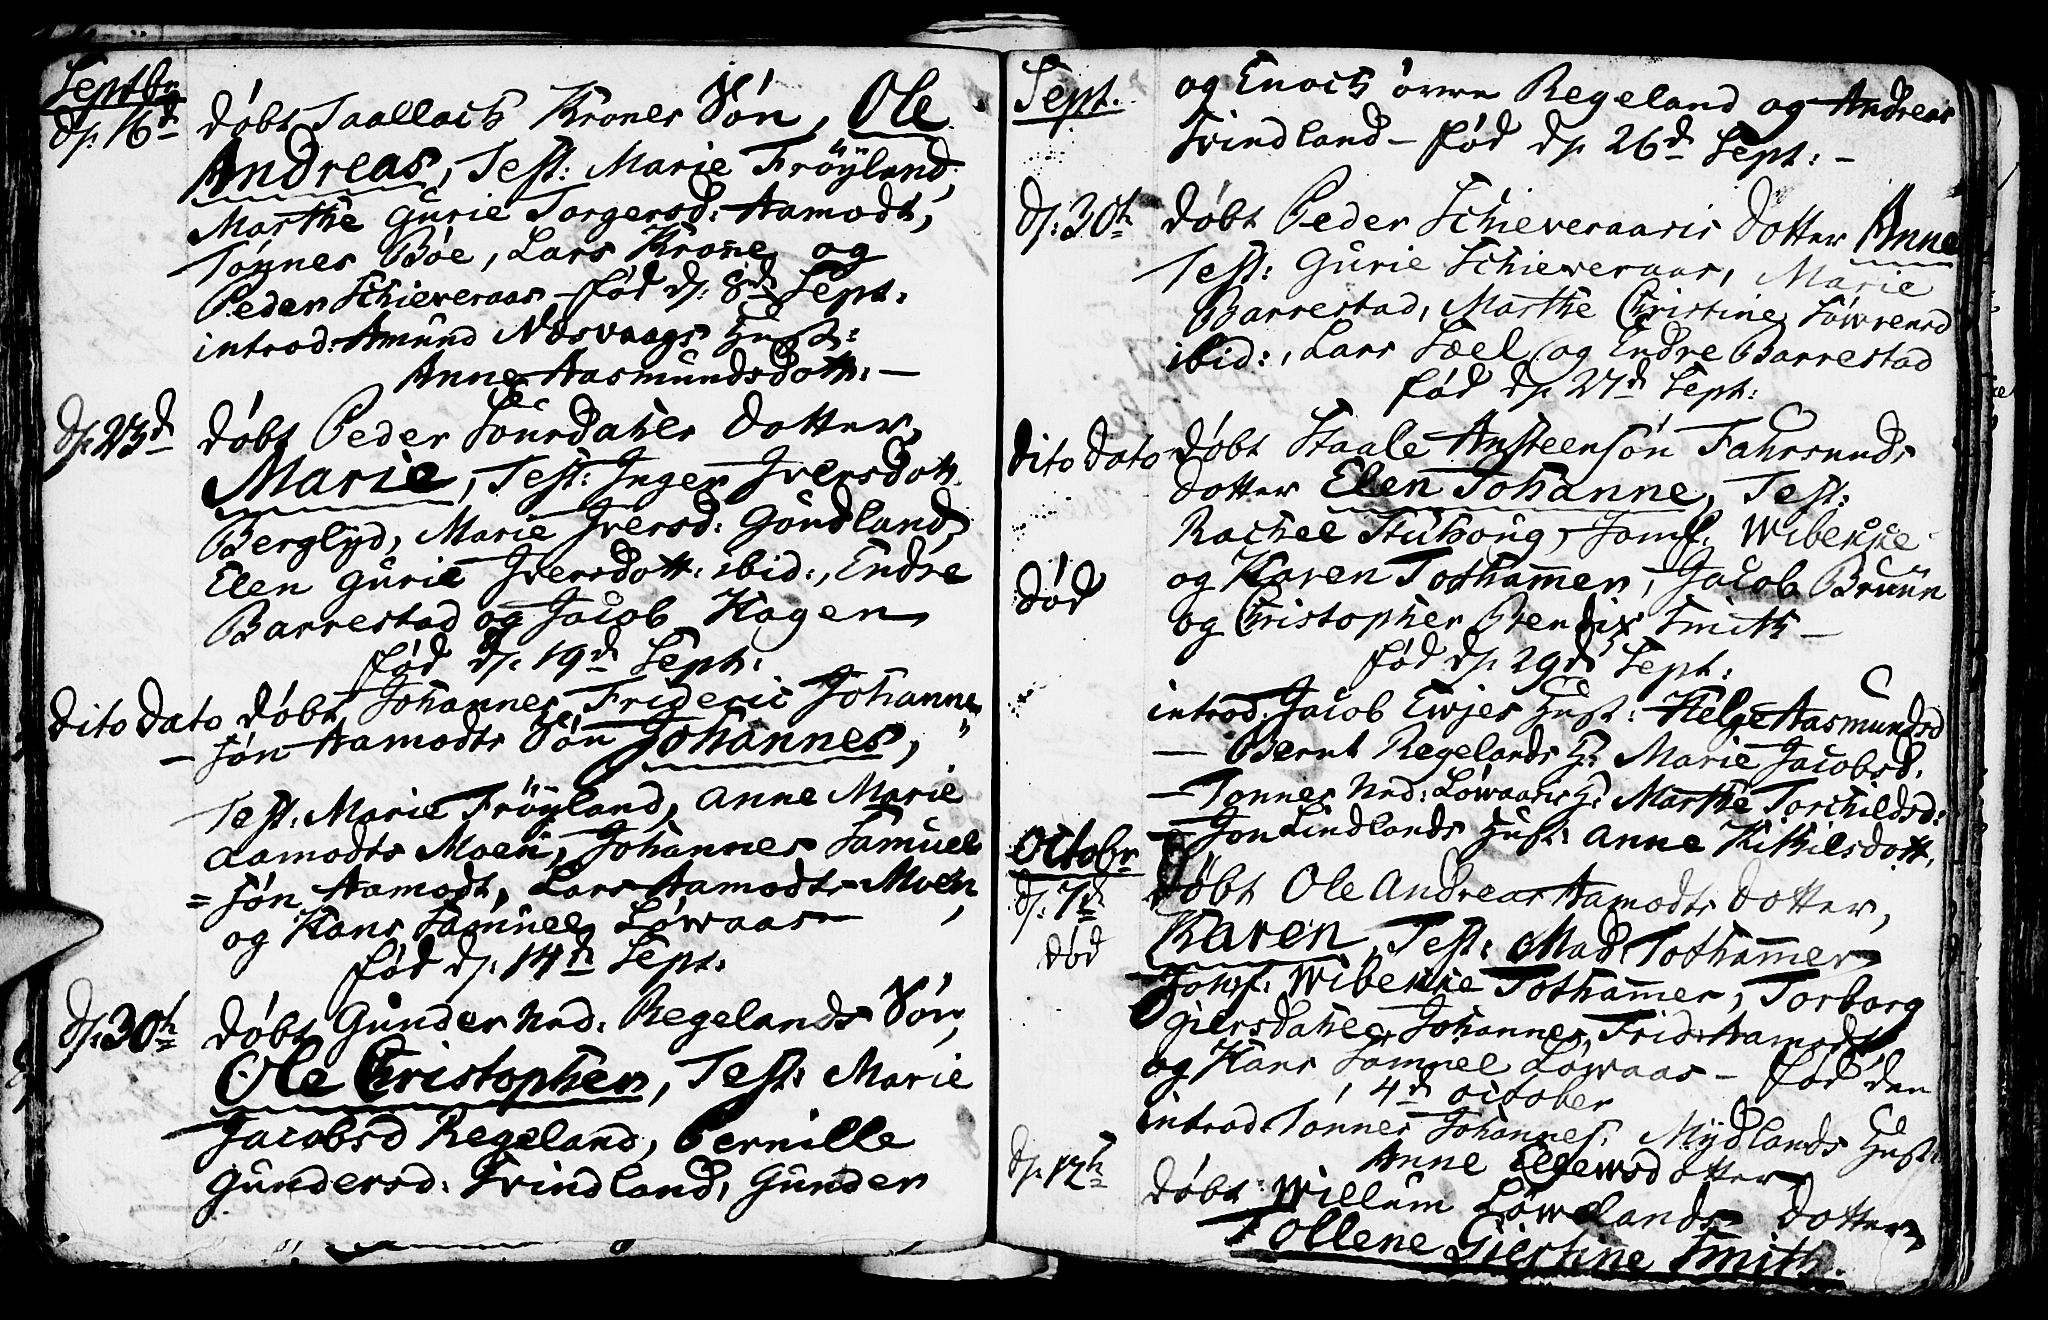 Septbr
d. 16d døbt Taallach Krones Søn, Ole
Andreas, Test: Marie Frøÿland,
Marthe Gurie Torgersd: Aamodt,
Tønnes Bøe, Lars Krone og
Peder Schieveraas - fød d. 8d Sept.
introd: Amund Næsvaags Hust:
Anne Aasmundsdott: -
d. 23d døbt Peder Suurdahls Dotter,
Marie, Test: Inger Iversdott
Berglyd, Marie Iversd: Gÿdland,
Elen Gurie Iversdott: ibid:, Endre
Barrestad og Jacob Hagen
fød d. 19d Sept:
dito dato døbt Johannes Frideric Johannes
- søn Aamodts Søn Johannes,
Test: Marie Frøÿland, Anne Marie
Aamodts Moen, Johannes Samuel
= søn Aamodt, Lars Aamodts Moen,
og Hans Samuel Løwaas
fød d. 14d Sept:
d. 30th døbt Gunder Nrd: Regelands Søn,
Ole Christopher, Test: Marie
Jacobsd Regeland, Pernille
Gundersd: Svindland, Gunder
Sept. og Enoch øvre Regeland og Andreas
Svindland - fød d. 26d Sept: -
d. 30th døbt Peder Schieveraasis Dotter Anne
Test: Gurie Schieveraas, Marie
Barrestad, Marthe Christine Løwrensd
ibid:, Lars Sæl og Endre Barrestad
fød d. 27d Sept:
dito dato døbt Staale Ansteensøn Fahrsunds
Dotter Elen Johanne, Test:
Rachel Stuhoug, Jomf. Wibekke
død og Karen Tothammer, Jacob Bruun
og Christopher Bendix Smith -
fød d. 29d Sept:
introd: Jacob Ewjes Hust: Helge Aasmundsd
- Bernt Regelands H: Marie Jacobsd.
- Tønnes Nrd: Løwaas H: Marthe Torchildsd:
- Jon Lindlands Hust: Anne Kithilsdott,
Octobr
d. 7d døbt Ole Andreas Aamodts Dotter,
død Karen, Test: Mad Tothammer
Jomf: Wibekke Tothammer, Torborg
Giersdahl, Johannes Frid: Aamodt
og Hans Samuel Løwaas - fød den
4d October
introd. Tønnes Johannes. Mÿdlands Hust:
Anne Ellewsdotter
d. 12th døbt Willum Løwlands Dotter
Tollene Giertine Smith.